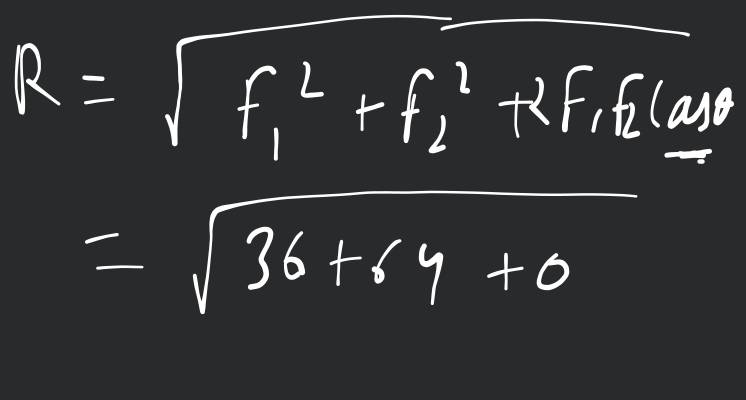 R = √(F₁² + F₂² + 2F₁F₂Cosθ
= √(36 + 64 + 0